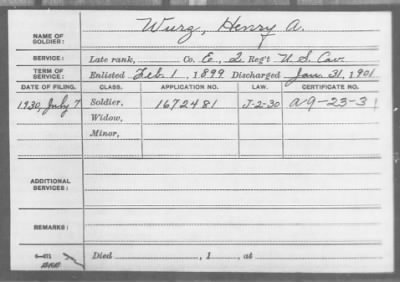 NAME OF SOLDIER: Wurz, Henry A.
SERVICE: Late rank, Co. E, 2 Reg't U S Cav.
TERM OF SERVICE: Enlisted Feb. 1, 1899 Discharged Jan. 31, 1901
DATE OF FILING. CLASS. APPLICATION NO. LAW. CERTIFICATE NO.
1930, July 7 Soldier, 1672481 J-2-30 A-9-23-3
Widow,
Minor,
ADDITIONAL SERVICES:
REMARKS:
Died , 1 , at